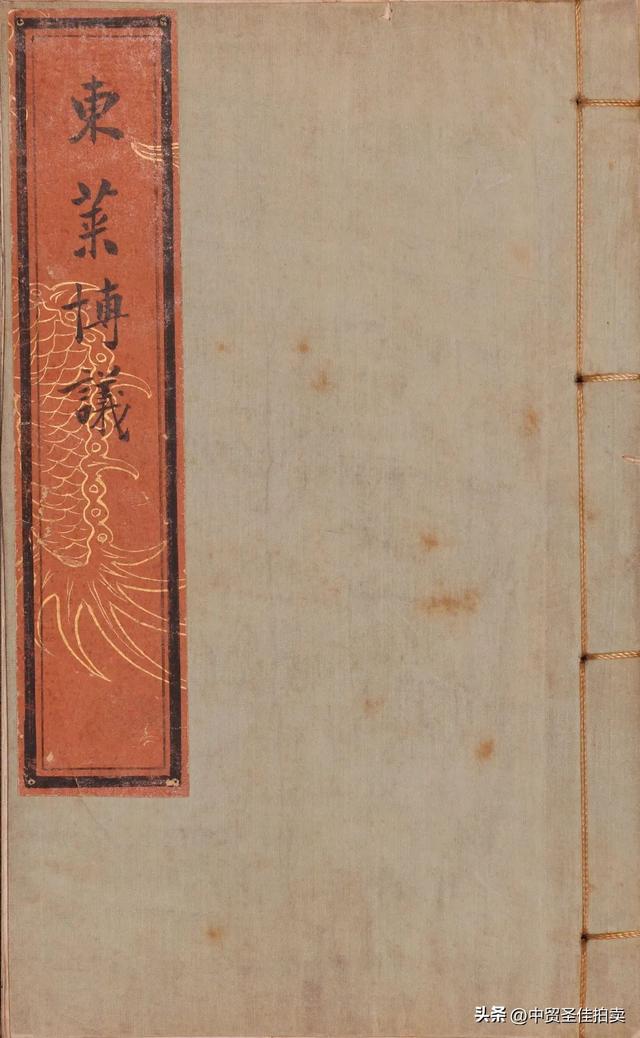 東萊博議
头条 @中贸圣佳拍卖